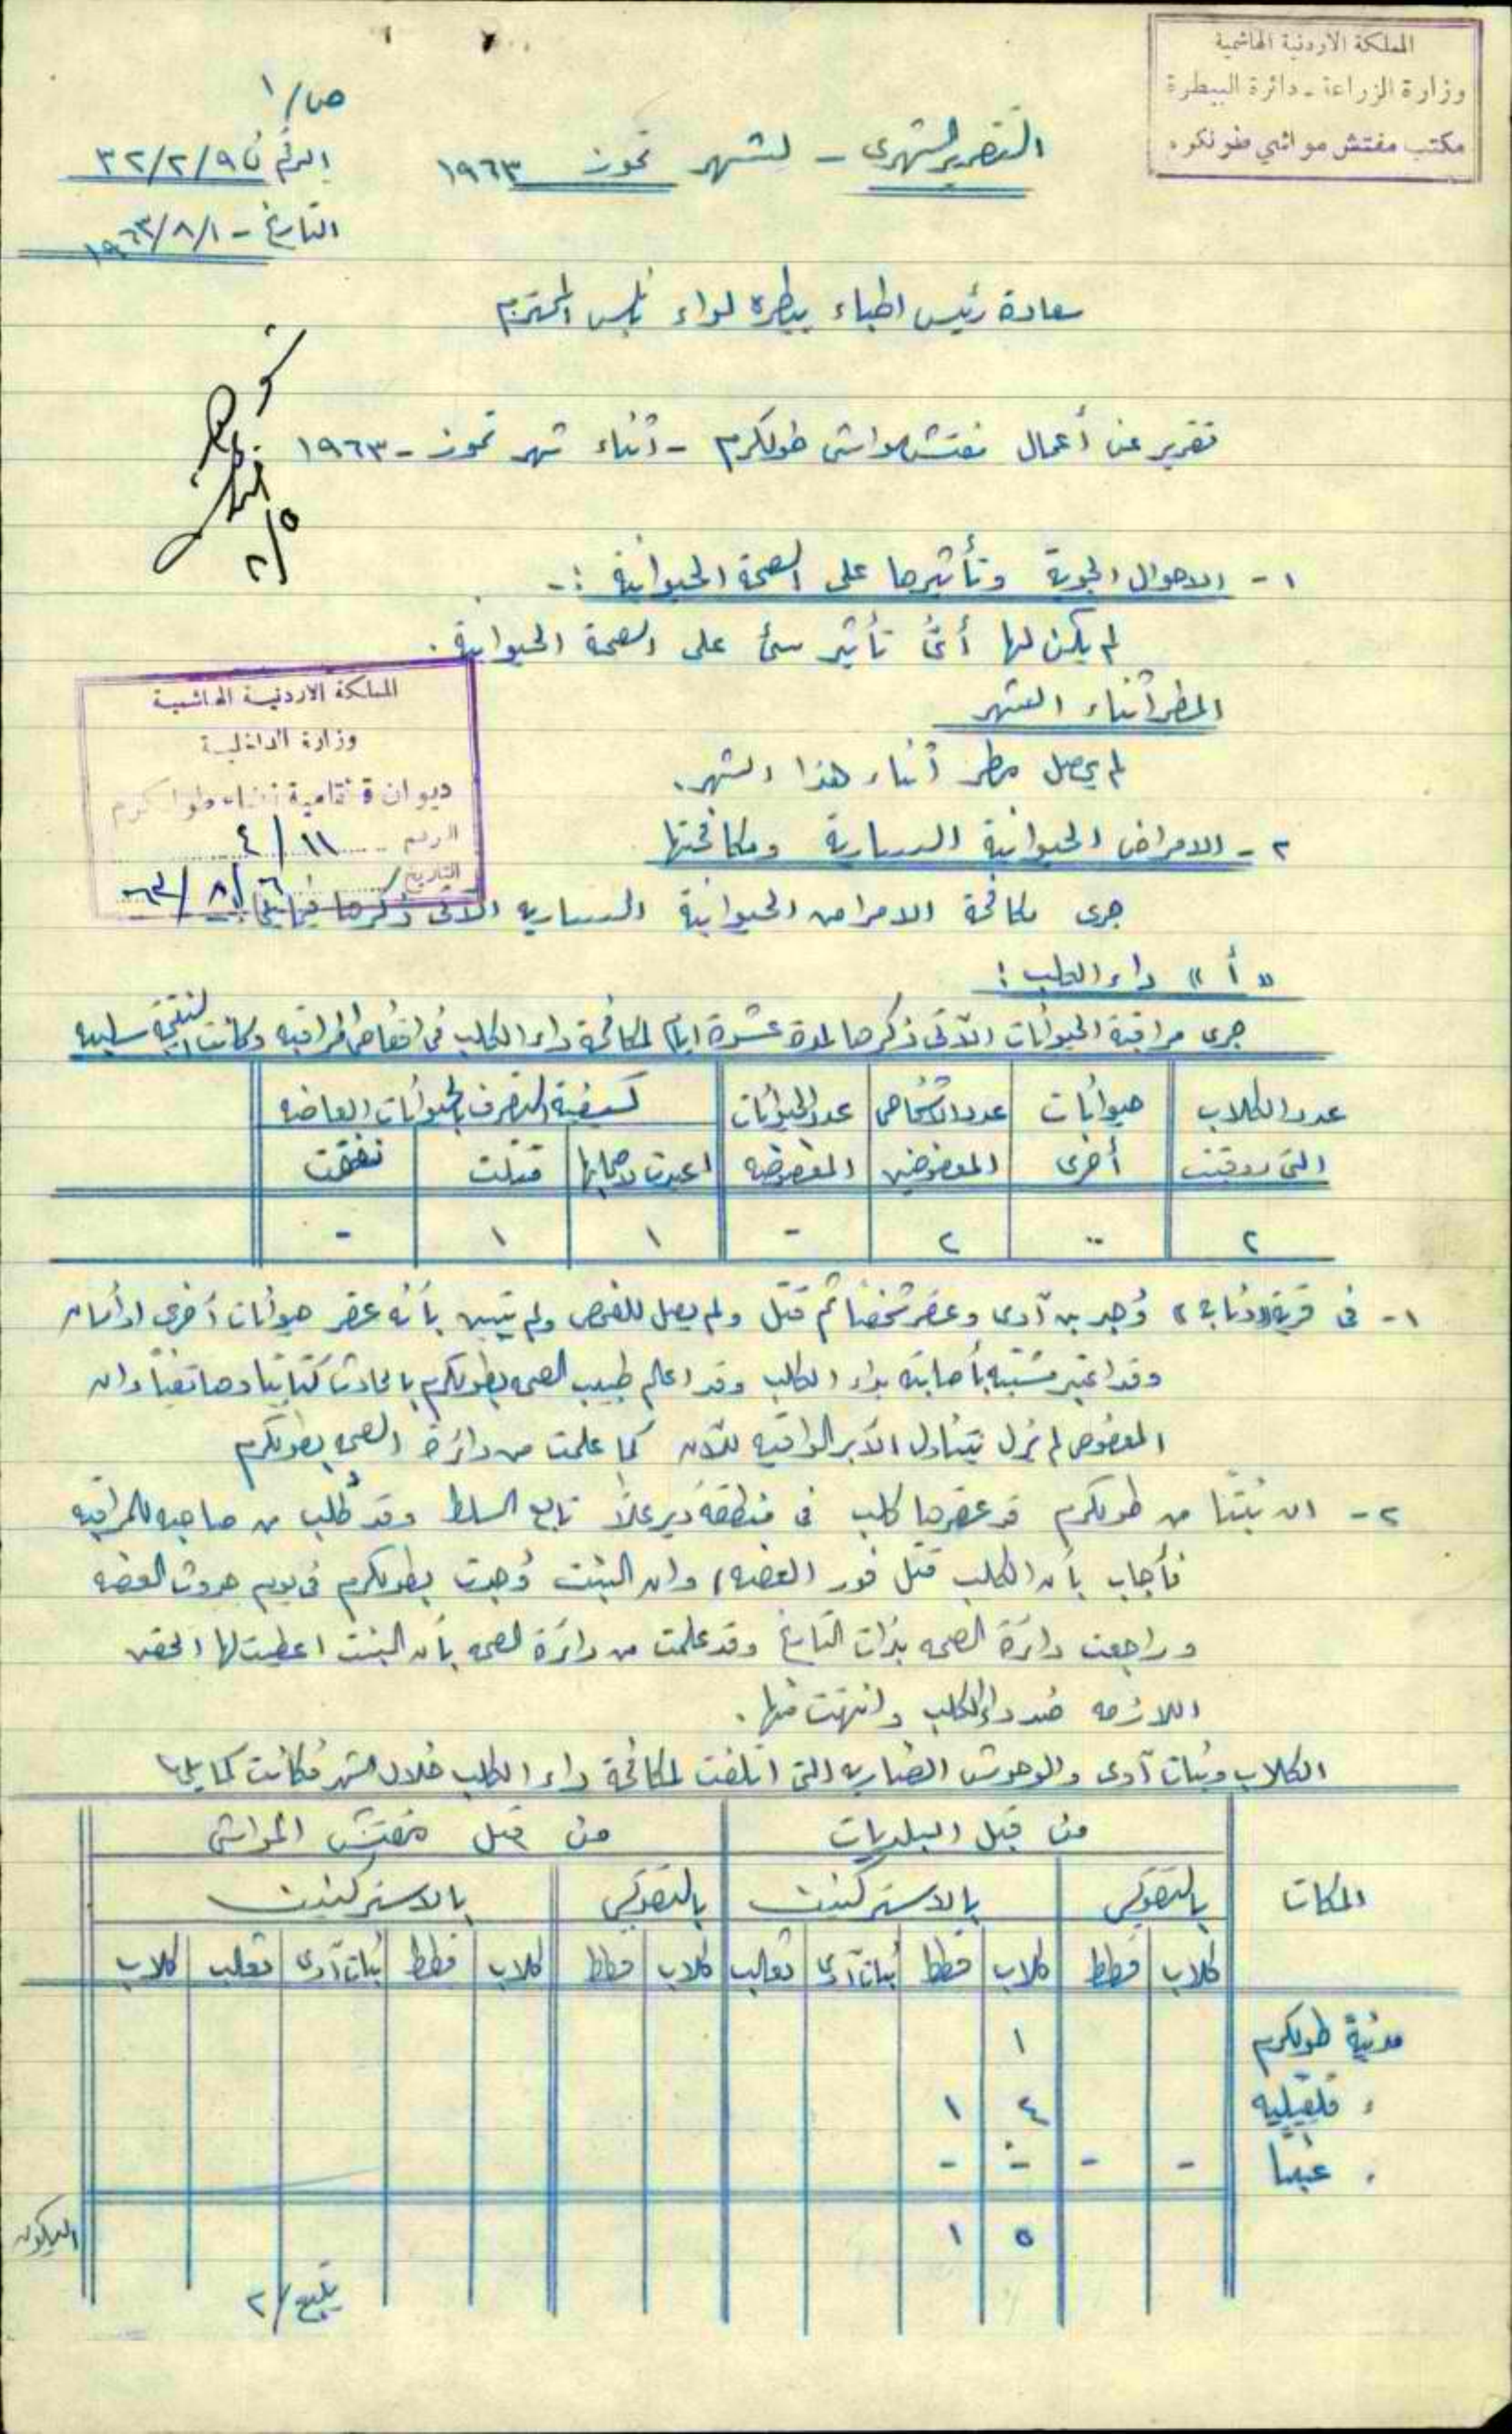 المملكة الاردنية الهاشمية
وزارة الزراعة - دائرة البيطرة
مكتب مفتش مواشي طولكرم
ص/١
التقرير الشهرى - لشهر تموز ١٩٦٣
الرقم ن ٩/٢/٣٢
التاريخ - ١/٨/١٩٦٣
سعادة رئيس اطباء بيطرة لواء نابلس المحترم
تقرير عن أعمال مفتش مواشى طولكرم - اثناء شهر تموز - ١٩٦٣
٢/٥
١ - الاحوال الجوية وتأثيرها على الصحة الحيوانية :-
لم يكن لها أىُّ تأثير سئ على الصحة الحيوانية .
المطر أثناء الشهر
لم يحصل مطر أثناء هذا الشهر.
المملكة الاردنية الهاشمية
وزارة الداخلية
ديوان قائمقامية قضاء طولكرم
الرقم ١١/٤
التاريخ ٦/٨/٦٣
٢ - الامراض الحيوانية السارية ومكافحتها
جرى مكافحة الامراض الحيوانية الساريه الآتى ذكرها فيما يلى :-
«أ» داء الكلب :
جرى مراقبة الحيوانات الآتى ذكرها لمدة عشرة ايام لمكافحة داء الكلب فى اقفاص المراقبه وكانت النتيجة سلبيه
عدد الكلاب التى روقبت | حيوانات أخرى | عدد الاشخاص المعضوضين | عدد الحيوانات المعضوضه | كيفية التصرف بالحيوانات العاضه
اعيدت لاصحابها | قتلت | نفقت
٢ | .. | ٢ | - | ١ | ١ | -
١ - فى قرية «ذنابه» وُجد بن آوى وعض شخصاً ثم قتل ولم يصل للفحص ولم يتبين بأنه عض حيوانات أخرى او أنسان
وقد اعتبر مشتبه بأصابته بداء الكلب وقد اعلم طبيب الصحه بطولكرم بالحادث كتابياً وهاتفياً وان
المعضوض لم يزل يتناول الأبر الواقيه للآن كما علمت من دائرة الصحه بطولكرم
٢ - ان بنتاً من طولكرم قد عضها كلب فى منطقة دير علا تابع السلط وقد طُلب من صاحبه للمراقبه
فأجاب بأن الكلب قتل فور العضه، وان البنت وُجدت بطولكرم فى يوم حدوث العضه
وراجعت دائرة الصحه بذات التاريخ وقد علمت من دائرة الصحه بأن البنت اعطيت لها الحقن
اللازمه ضد داء الكلب وانتهت منها .
الكلاب وبنات آوى والوحوش الضاريه التى اتلفت لمكافحة داء الكلب خلال الشهر فكانت كما يلى :-
المكان | من قبل البلديات | من قبل مفتش المواشى
بالخرطوش | بالاستركنين | بالخرطوش | بالاستركنين
كلاب | قطط | كلاب | قطط | بنات آوى | ثعالب | كلاب | قطط | كلاب | قطط | بنات آوى | ثعالب | كلاب
مدينة طولكرم ١
، قلقيليه ٤ ١
، عنبتا - - - -
٥ ١
يتبع/٢